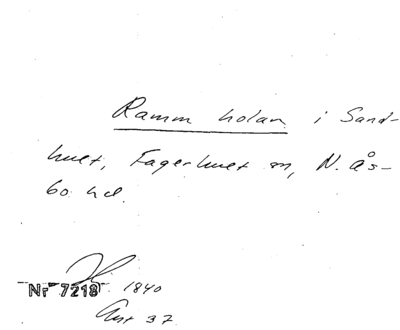 Ramm holan i Sand-
hult, Fagerhult sn, N. Ås-
bo hd.
Nr 7218 1840
Ant 37